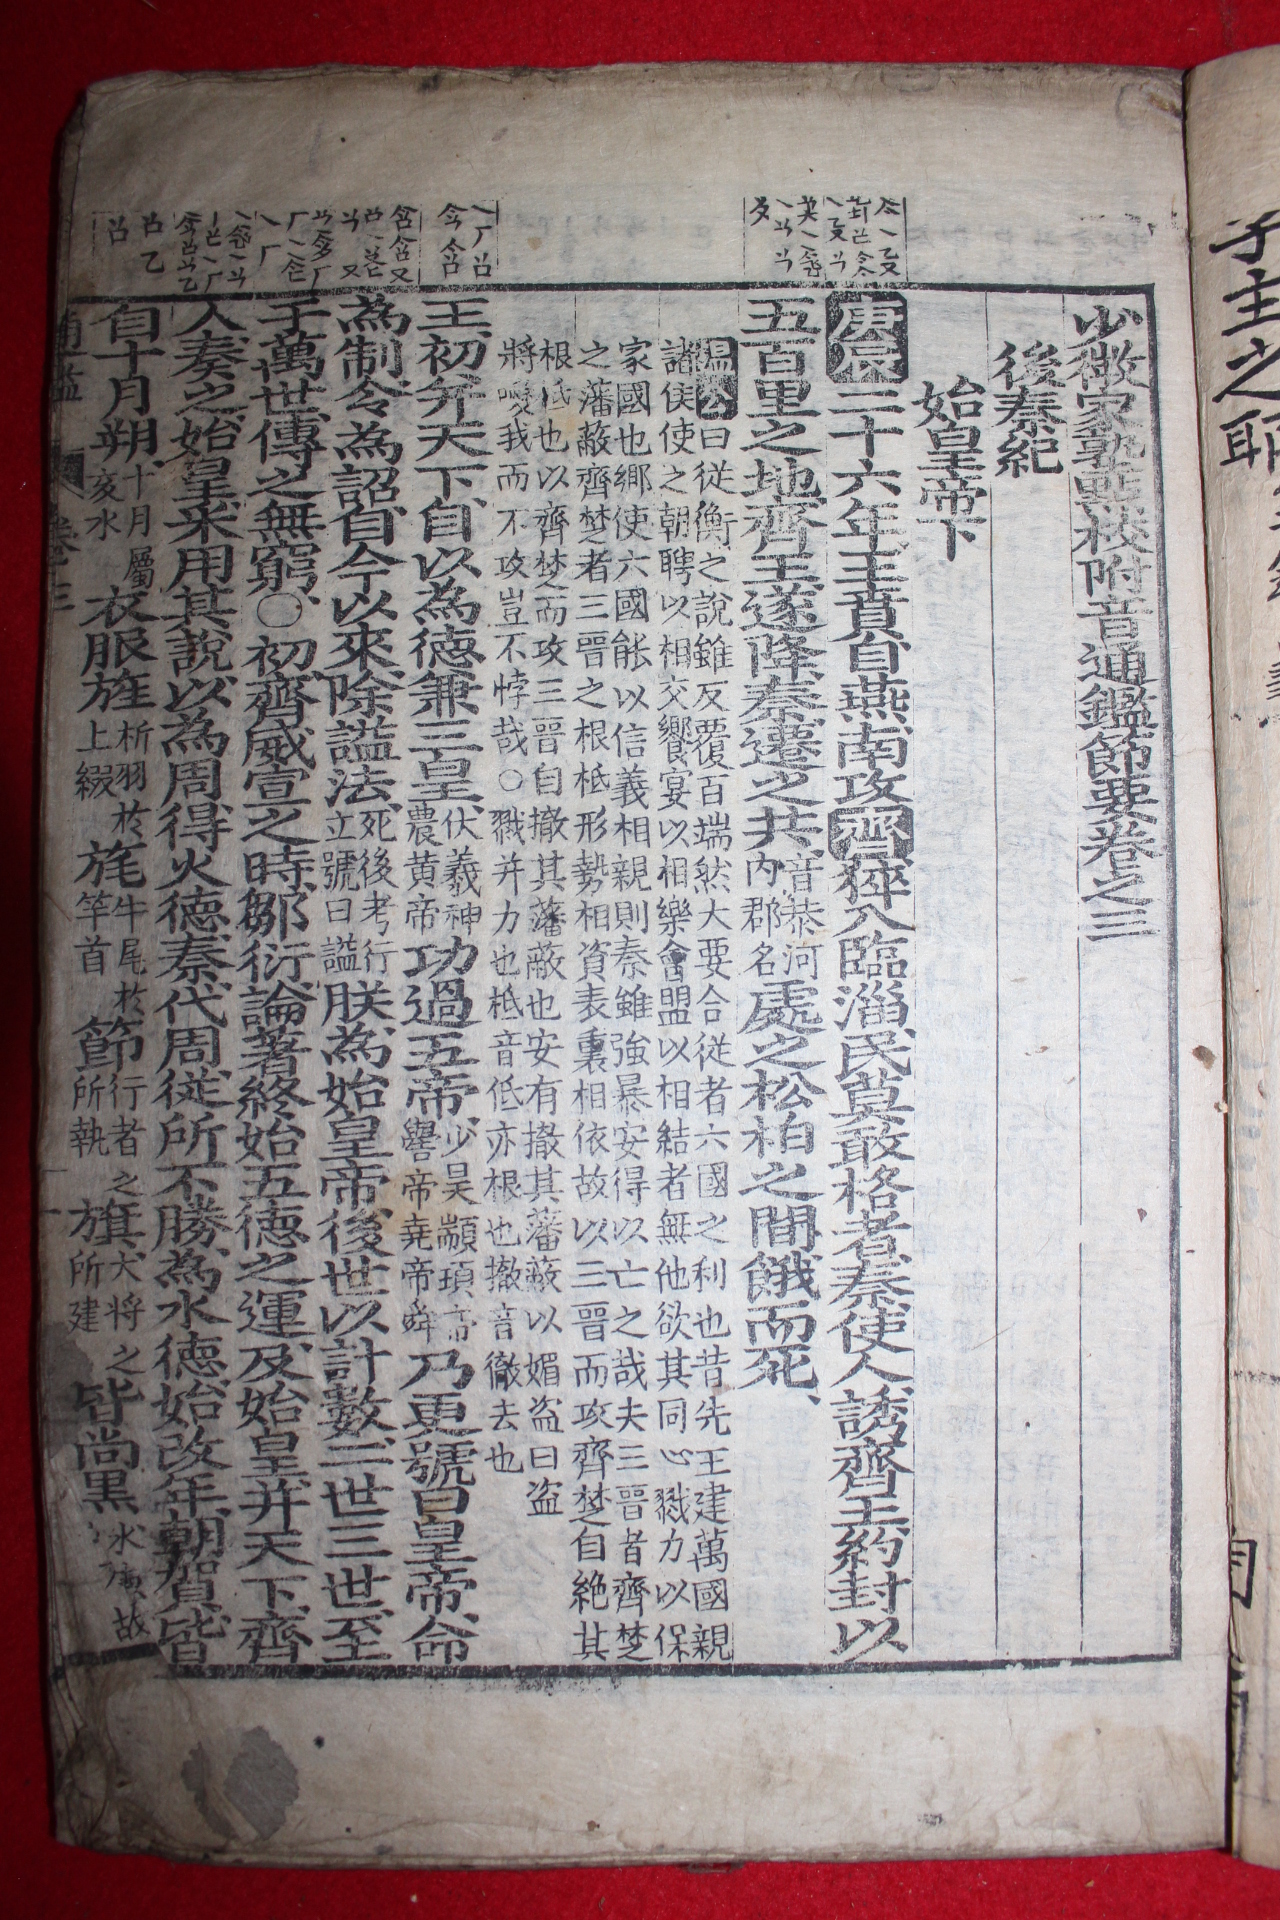 少微家塾點校附音通鑑節要卷之三
後秦紀
始皇帝下
庚辰二十六年王賁自燕南攻齊猝入臨淄民莫敢格者秦使人誘齊王約封以
五百里之地齊王遂降秦遷之共音恭河內郡名處之松柏之間餓而死
溫公曰從衡之說雖反覆百端然大要合從者六國之利也昔先王建萬國親
諸侯使之朝聘以相交饗宴以相樂會盟以相結者無他欲其同心戮力以保
家國也鄉使六國能以信義相親則秦雖強暴安得以亡之哉夫三晉者齊楚
之藩蔽齊楚者三晉之根柢形勢相資表裏相依故以三晉而攻齊楚自絶其
根柢也以齊楚而攻三晉自撤其藩蔽也安有撤其藩蔽以媚盜曰盜
將愛我而不攻豈不悖哉○戮并力也柢音低亦根也撤音徹去也
王初并天下自以為德兼三皇伏羲神農黃帝功過五帝少昊顓頊帝嚳帝堯帝舜乃更號曰皇帝命
為制令為詔自今以來除謚法死後考行立號曰謚朕為始皇帝後世以計數二世三世至
于萬世傳之無窮○初齊威宣之時鄒衍論著終始五德之運及始皇并天下齊
人奏之始皇采用其說以為周得火德秦代周從所不勝為水德始改年朝賀皆
自十月朔十月屬亥水衣服旌析羽於上綴旄牛尾於竿首節行者之所執旗犬將之所建皆尚黑水德故
通鑑 卷三 一